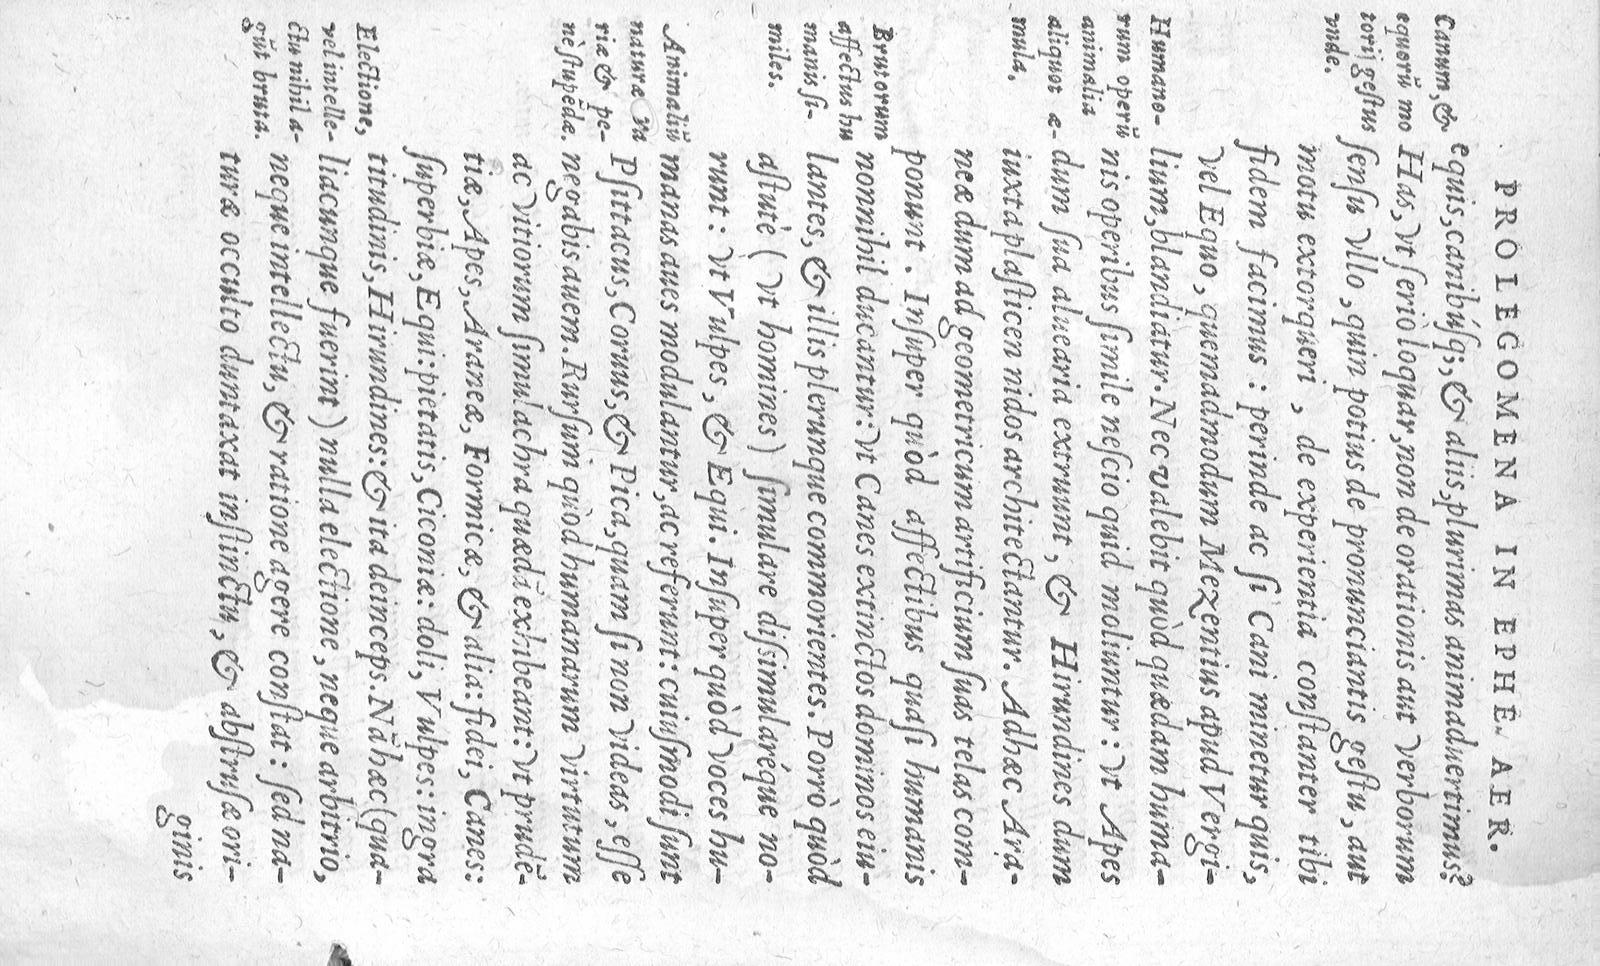 PROLEGOMENA IN EPHE. AER.
equis, canibúsq;, & aliis, plurimas animaduertimus?
Has, vt seriò loquar, non de orationis aut verborum
sensu vllo, quin potius de pronunciantis gestu, aut
motu extorqueri, de experientia constanter tibi
fidem facimus: perinde ac si Cani minetur quis,
vel Equo, quemadmodum Mezentius apud Vergi-
lium, blandiatur. Nec valebit quòd quædam huma-
nis operibus simile nescio quid moliuntur: vt Apes
dum sua aluearia extruunt, & Hirundines dum
iuxta plasticen nidos architectantur. Adhæc Ara-
neæ dum ad geometricum artificium suas telas com-
ponunt. Insuper quòd affectibus quasi humanis
nonnihil ducantur: vt Canes extinctos dominos eiu-
lantes, & illis plerumque commorientes. Porrò quòd
astutè (vt homines) simulare dissimularéque no-
runt: vt Vulpes, & Equi. Insuper quòd voces hu-
manas aues modulantur, ac referunt: cuiusmodi sunt
Psittacus, Coruus, & Pica, quam si non videas, esse
negabis auem. Rursum quòd humanarum virtutum
ac vitiorum simulachra quædā exhibeant: vt prudē-
tiæ, Apes, Araneæ, Formicæ, & alia: fidei, Canes:
superbiæ, Equi: pietatis, Ciconiæ: doli, Vulpes: ingra
titudinis, Hirundines: & ita deinceps. Nā hæc (qua-
liacunque fuerint) nulla electione, neque arbitrio,
neque intellectu, & ratione agere constat: sed na-
turæ occulto duntaxat instinctu, & abstrusæ ori-
ginis
Canum, &
equorū mo
tori gestus
vnde.
Humano-
rum operū
animalia
aliquot æ-
mula.
Brutorum
affectus hu
manis si-
miles.
Animaliū
naturæ va
riæ & pe-
nè stupēdæ.
Electione,
vel intelle-
ctu nihil a-
gūt bruta.